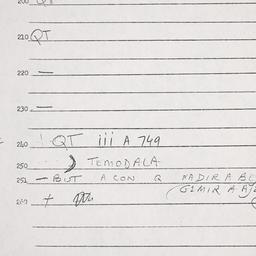 200 QT
210 QT
220 —
230 —
240 QT iii A 749
250 TEMODALA
251 — BUT A CON Q NADIR A BL
GIMIR A
260 +